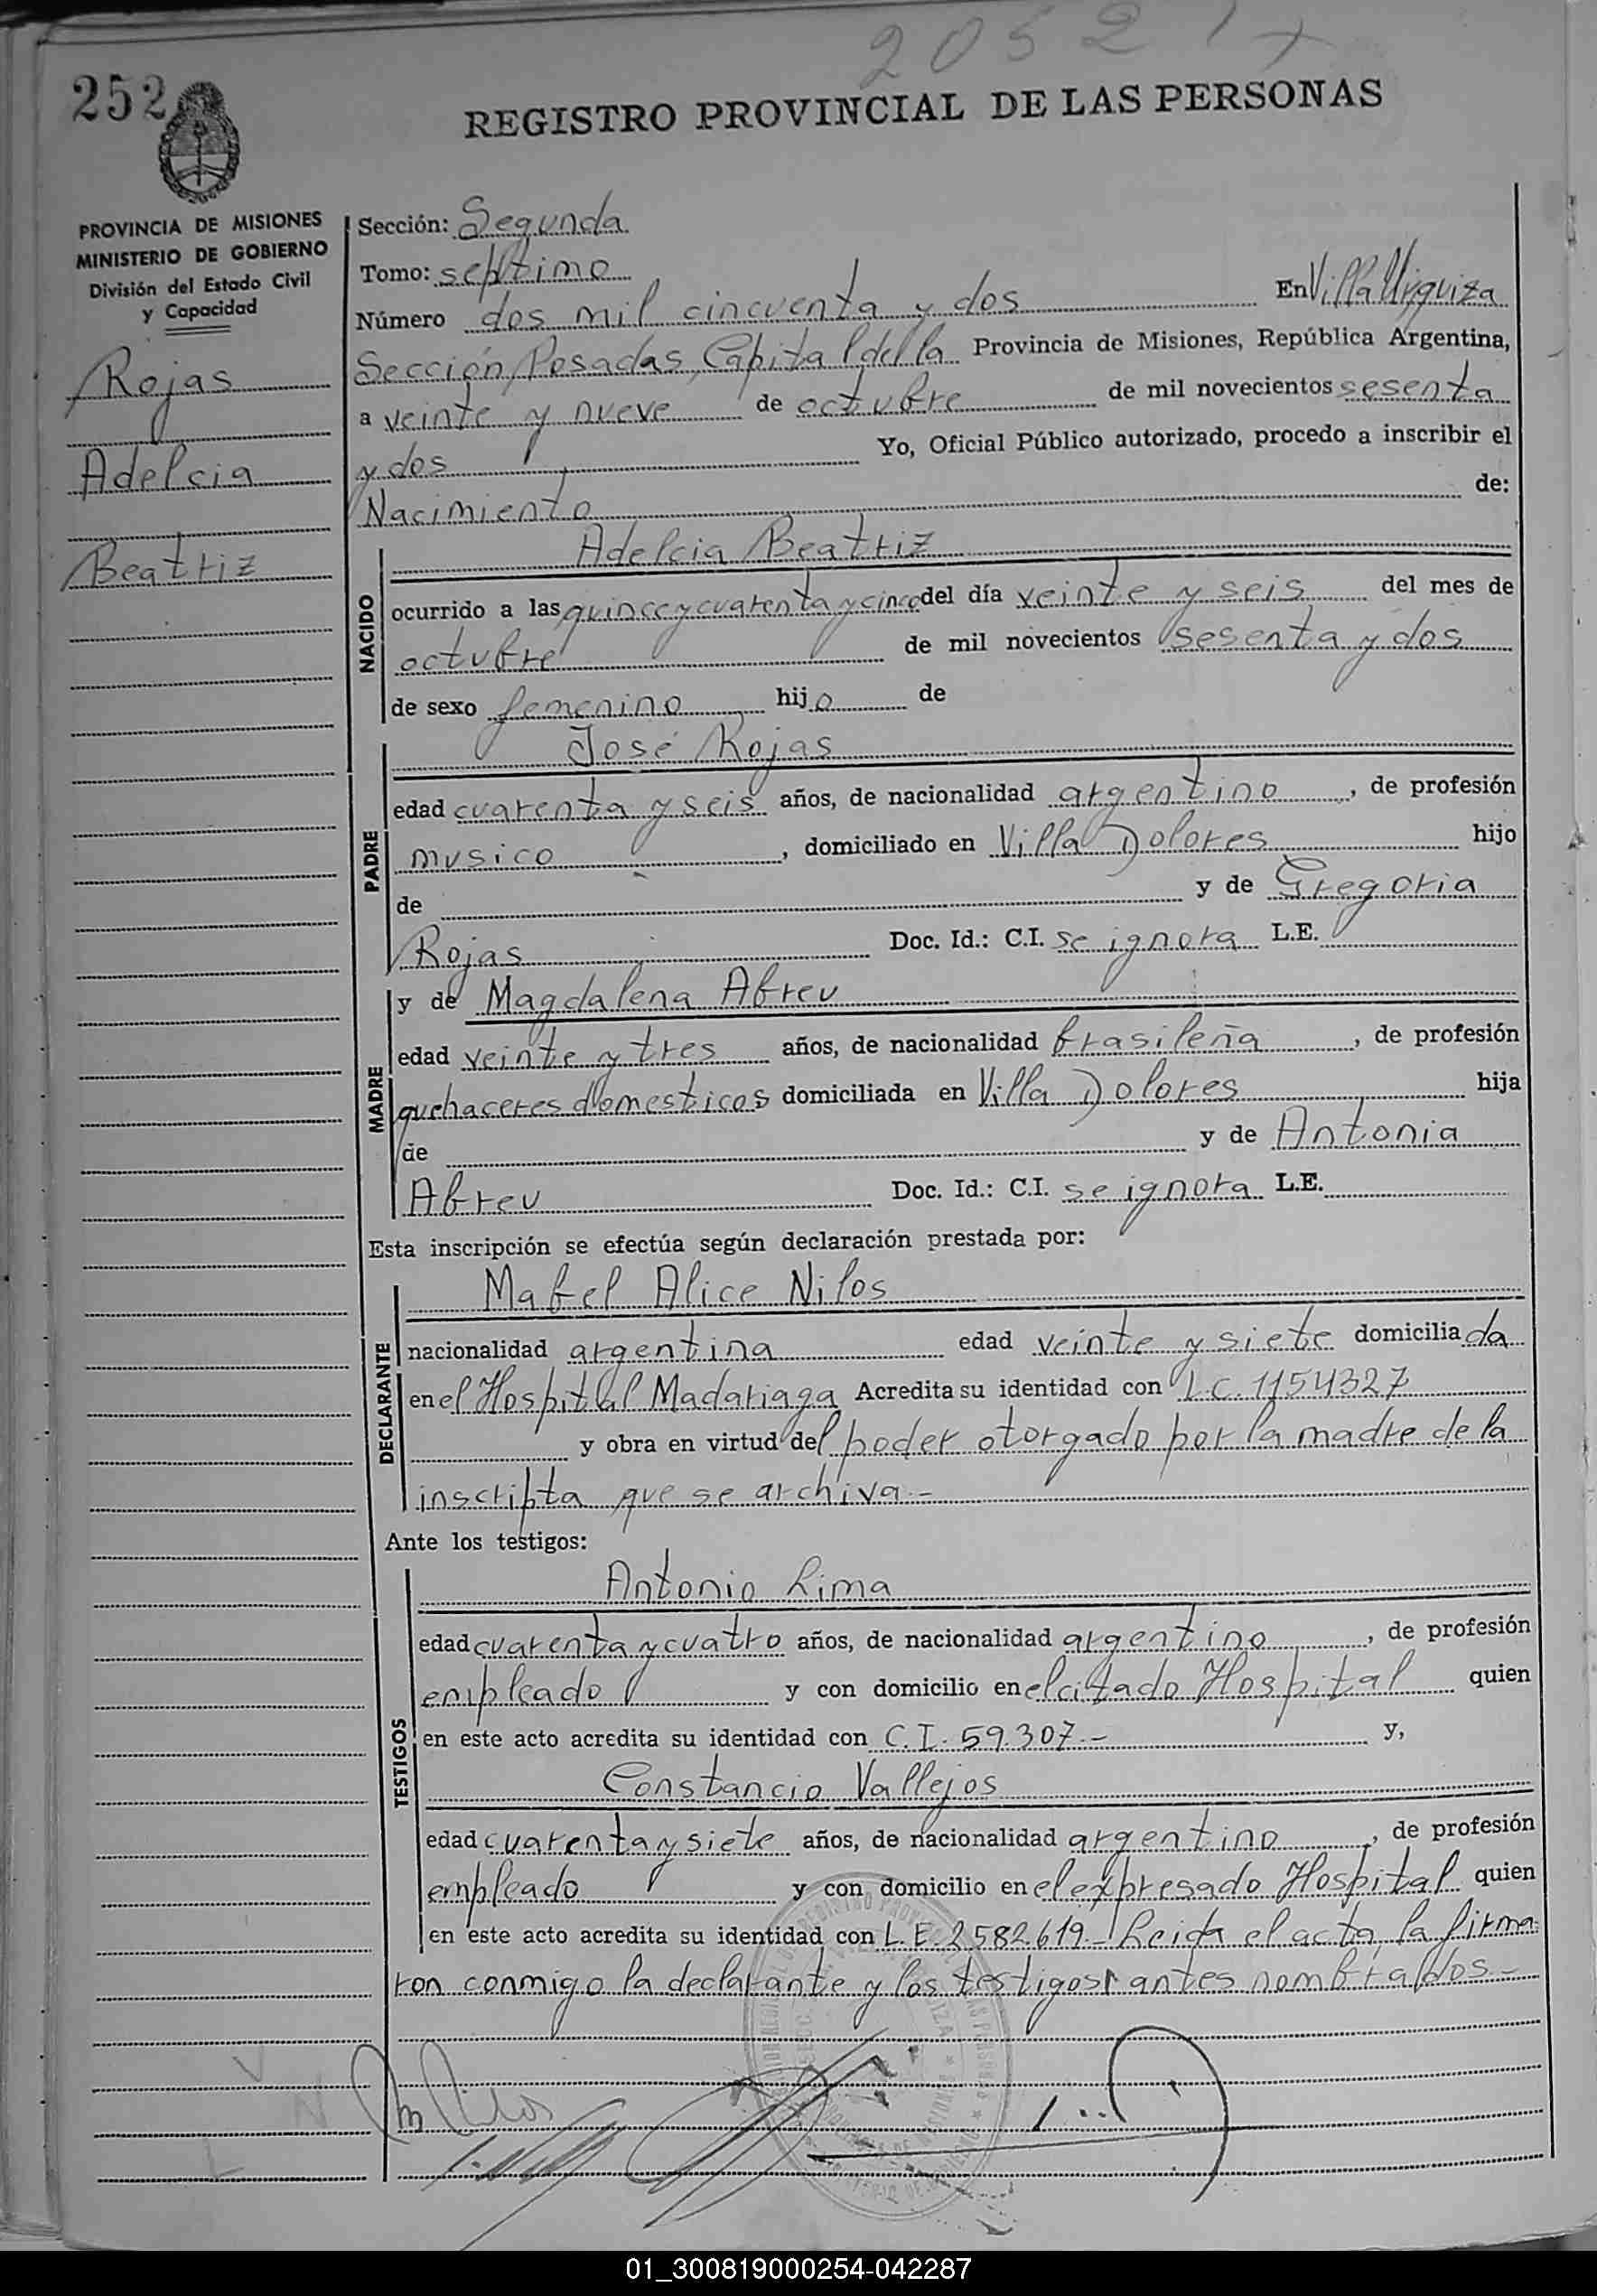 2052
252
REGISTRO PROVINCIAL DE LAS PERSONAS
PROVINCIA DE MISIONES
MINISTERIO DE GOBIERNO
División del Estado Civil
y Capacidad
Rojas
Adelcia
Beatriz
Sección: Segunda
Tomo: septimo
Número dos mil cincuenta y dos En Villa Urquiza
Sección, Posadas, Capital de la Provincia de Misiones, República Argentina,
a veinte y nueve de octubre de mil novecientos sesenta
y dos Yo, Oficial Público autorizado, procedo a inscribir el
Nacimiento de:
NACIDO
Adelcia Beatriz
ocurrido a las quince y cuarenta y cinco del día veinte y seis del mes de
octubre de mil novecientos sesenta y dos
de sexo femenino hijo de
PADRE
José Rojas
edad cuarenta y seis años, de nacionalidad argentino, de profesión
musico, domiciliado en Villa Dolores hijo
de y de Gregoria
Rojas Doc. Id.: C.I. se ignora L.E.
MADRE
y de Magdalena Abreu
edad veinte y tres años, de nacionalidad brasileña, de profesión
quehaceres domesticos domiciliada en Villa Dolores hija
de y de Antonia
Abreu Doc. Id.: C.I. se ignora L.E.
Esta inscripción se efectúa según declaración prestada por:
DECLARANTE
Mabel Alice Nilos
nacionalidad argentina edad veinte y siete domiciliada
en el Hospital Madariaga Acredita su identidad con L.C. 1154327
y obra en virtud del poder otorgado por la madre de la
inscripta que se archiva.-
Ante los testigos:
TESTIGOS
Antonio Lima
edad cuarenta y cuatro años, de nacionalidad argentino, de profesión
empleado y con domicilio en el citado Hospital quien
en este acto acredita su identidad con C.I. 59.307.- y,
Constancio Vallejos
edad cuarenta y siete años, de nacionalidad argentino, de profesión
empleado y con domicilio en el expresado Hospital quien
en este acto acredita su identidad con L.E. 2582.619.- Leida el acta, la firma
ron conmigo la declarante y los testigos antes nombrados.-
01_300819000254-042287